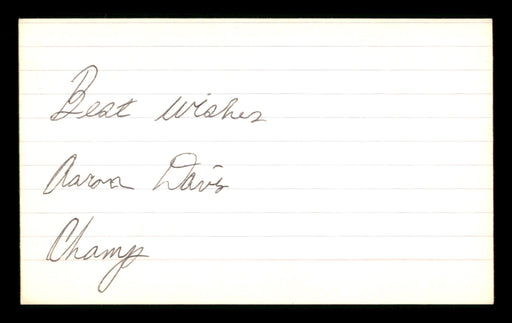 Best wishes
Aaron Davis
Champ